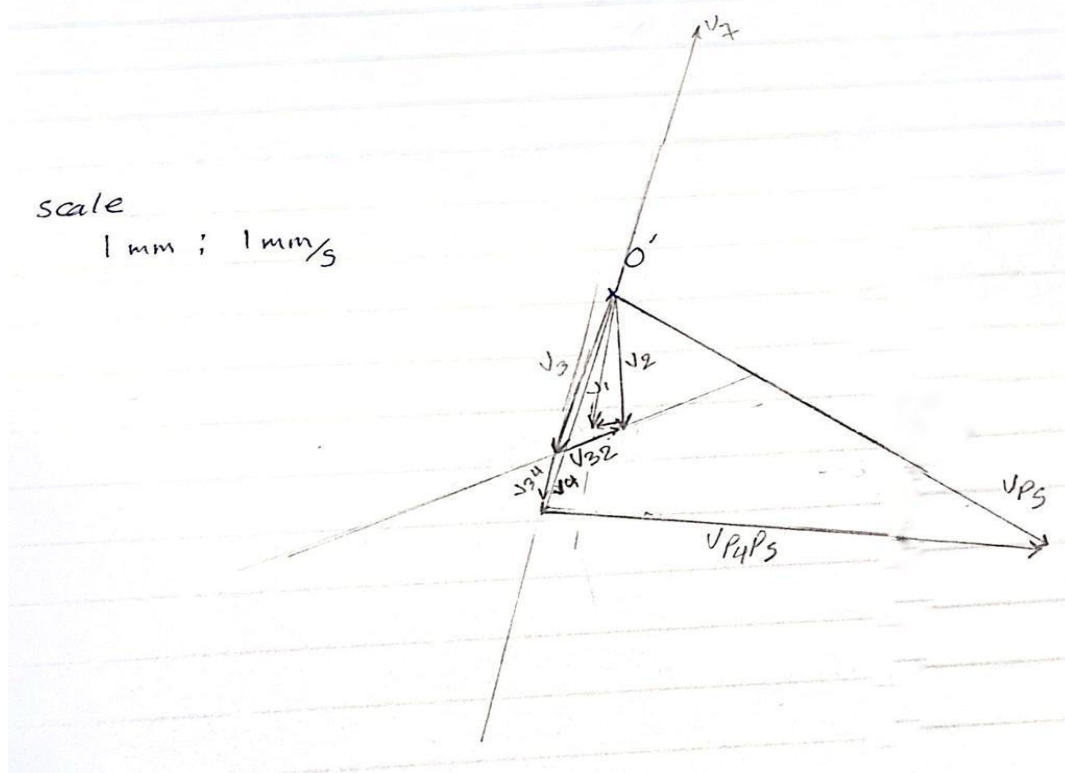 V7
scale
1 mm ; 1 mm/s
O'
V3
V2
V1
V32
V34
V4
VP5
VP4P5